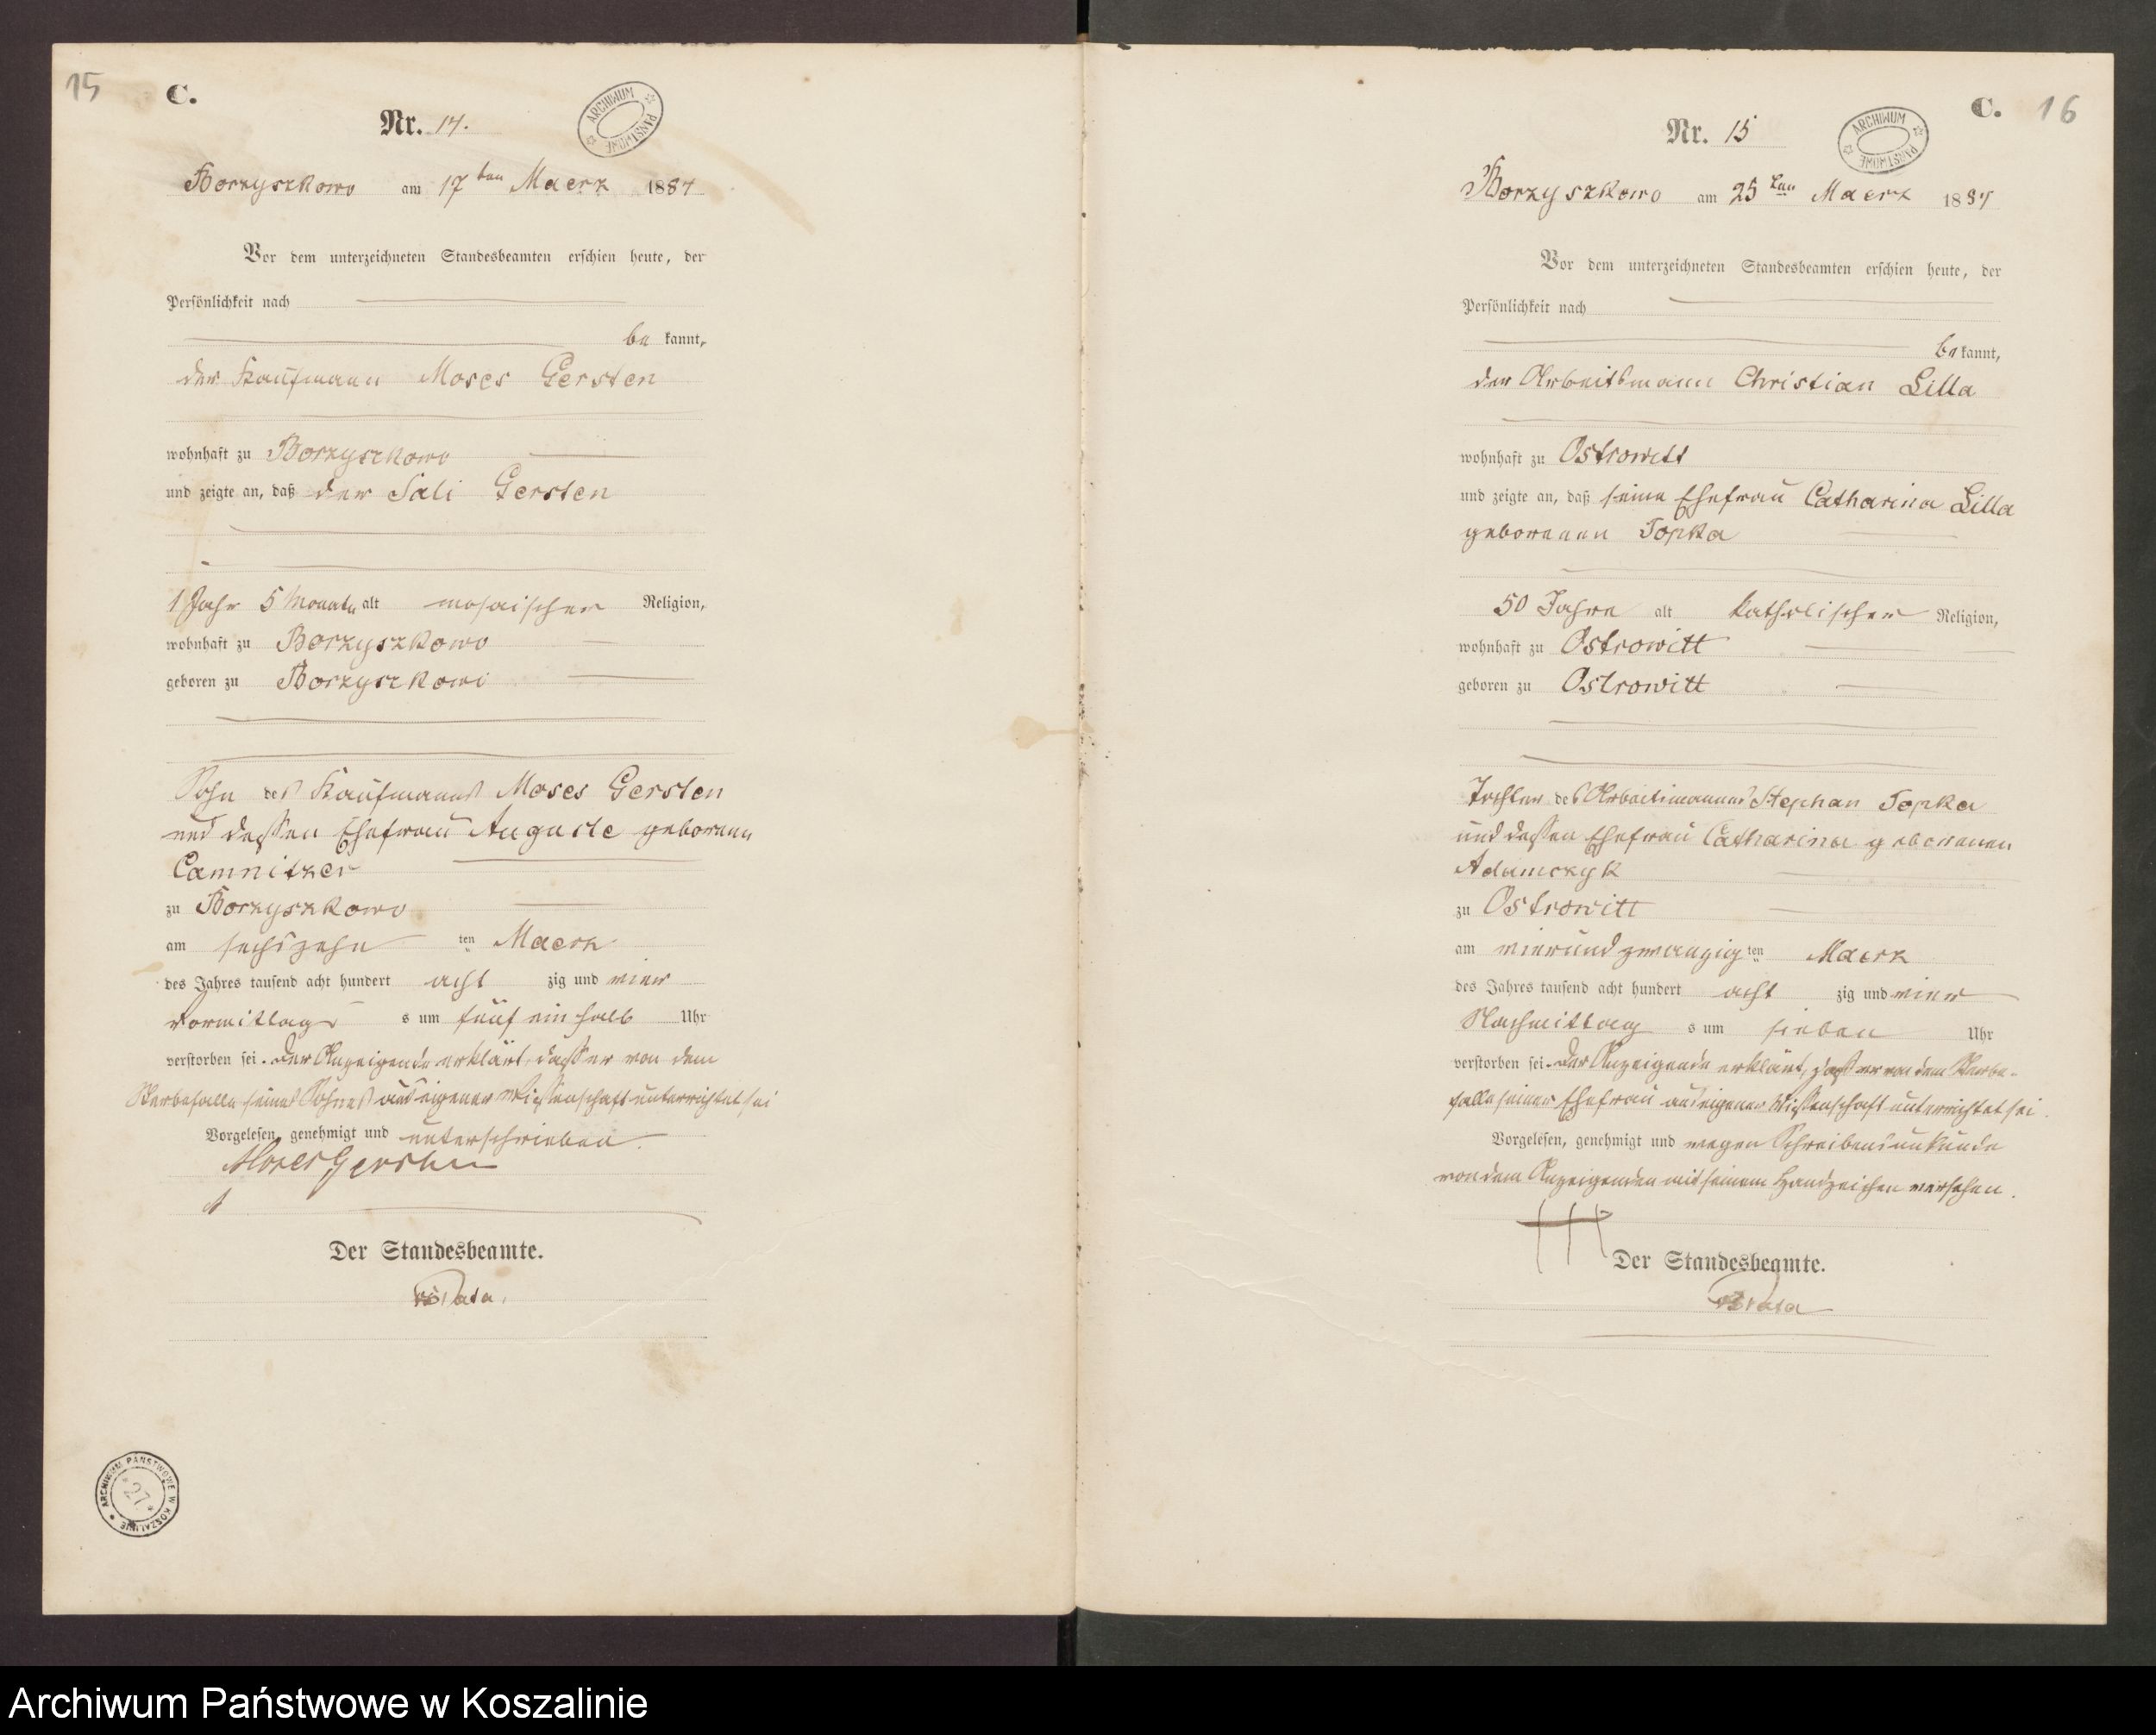 15
C.
Nr. 14.
ARCHIWUM PAŃSTWOWE
Borzyszkowo am 17ten Maerz 1884
Vor dem unterzeichneten Standesbeamten erschien heute, der
Persönlichkeit nach
be kannt,
der Kaufmann Moses Gersten
wohnhaft zu Borzyszkowo
und zeigte an, daß der Sali Gersten
1 Jahr 5 Monate alt mosaischer Religion,
wohnhaft zu Borzyszkowo
geboren zu Borzyszkowo
Sohn des Kaufmanns Moses Gersten
und dessen Ehefrau Auguste geborenen
Camnitzer
zu Borzyszkowo
am sechszehn ten Maerz
des Jahres tausend acht hundert acht zig und vier
Vormittag s um fünf ein halb Uhr
verstorben sei. Der Anzeigende erklärt, dass er von dem
Sterbefalle seines Sohnes aus eigener Wissenschaft unterrichtet sei
Vorgelesen, genehmigt und unterschrieben.
Moses Gersten
Der Standesbeamte.
ARCHIWUM PAŃSTWOWE W KOSZALINIE
27
C.
16
Nr. 15
ARCHIWUM PAŃSTWOWE
Borzyszkowo am 25ten Maerz 1884
Vor dem unterzeichneten Standesbeamten erschien heute, der
Persönlichkeit nach
be kannt,
der Arbeitsmann Christian Lilla
wohnhaft zu Ostrowitt
und zeigte an, daß seine Ehefrau Catharina Lilla
geborenen Topka
50 Jahre alt katholischer Religion,
wohnhaft zu Ostrowitt
geboren zu Ostrowitt
Tochter des Arbeitsmannes Stephan Topka
und dessen Ehefrau Catharina geborenen
Adamczyk
zu Ostrowitt
am vierundzwanzig ten Maerz
des Jahres tausend acht hundert acht zig und vier
Nachmittag s um sieben Uhr
verstorben sei. Der Anzeigende erklärt, dass er von dem Sterbe-
falle seiner Ehefrau aus eigener Wissenschaft unterrichtet sei.
Vorgelesen, genehmigt und wegen Schreibensunkunde
von dem Anzeigenden mit seinem Handzeichen versehen.
Der Standesbeamte.
Archiwum Państwowe w Koszalinie